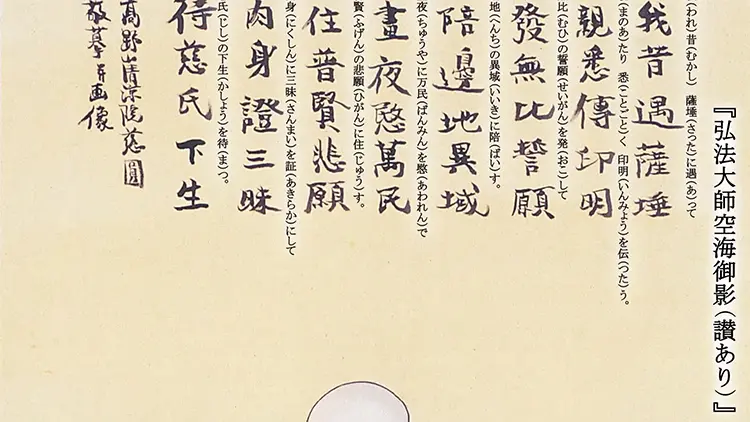 『弘法大師空海御影(讃あり)』
(われ)昔(むかし) 薩埵(さった)に遇(あ)って
我昔遇薩埵
(まのあ)たり 悉(ことごと)く 印明(いんみょう)を伝(つた)う。
親悉傳印明
比(むひ)の誓願(せいがん)を発(おこ)して
發無比誓願
地(へんち)の異域(いいき)に陪(ばい)す。
陪邊地異域
夜(ちゅうや)に万民(ばんみん)を愍(あわれん)で
晝夜愍萬民
賢(ふげん)の悲願(ひがん)に住(じゅう)す。
住普賢悲願
身(にくしん)に三昧(さんまい)を証(あきらか)にして
肉身證三昧
氏(じし)の下生(かしょう)を待(ま)つ。
待慈氏下生
高野山清涼院慈圓
敬摹并画像